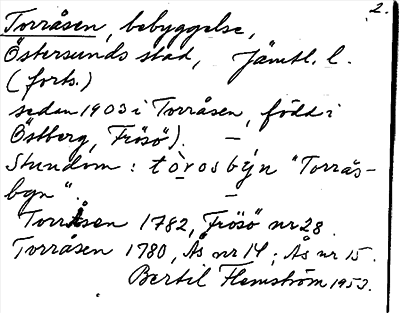 2.
Torråsen, bebyggelse,
Östersunds stad, Jämtl. l.
(forts.)
sedan 1903 i Torråsen, född i
Östberg, Frösö). —
Stundom: tòrosbýn "Torrås-
byn". —
Torråsen 1782, Frösö nr 28.
Torråsen 1780, Ås nr 14; Ås nr 15.
Bertil Flemström 1953.